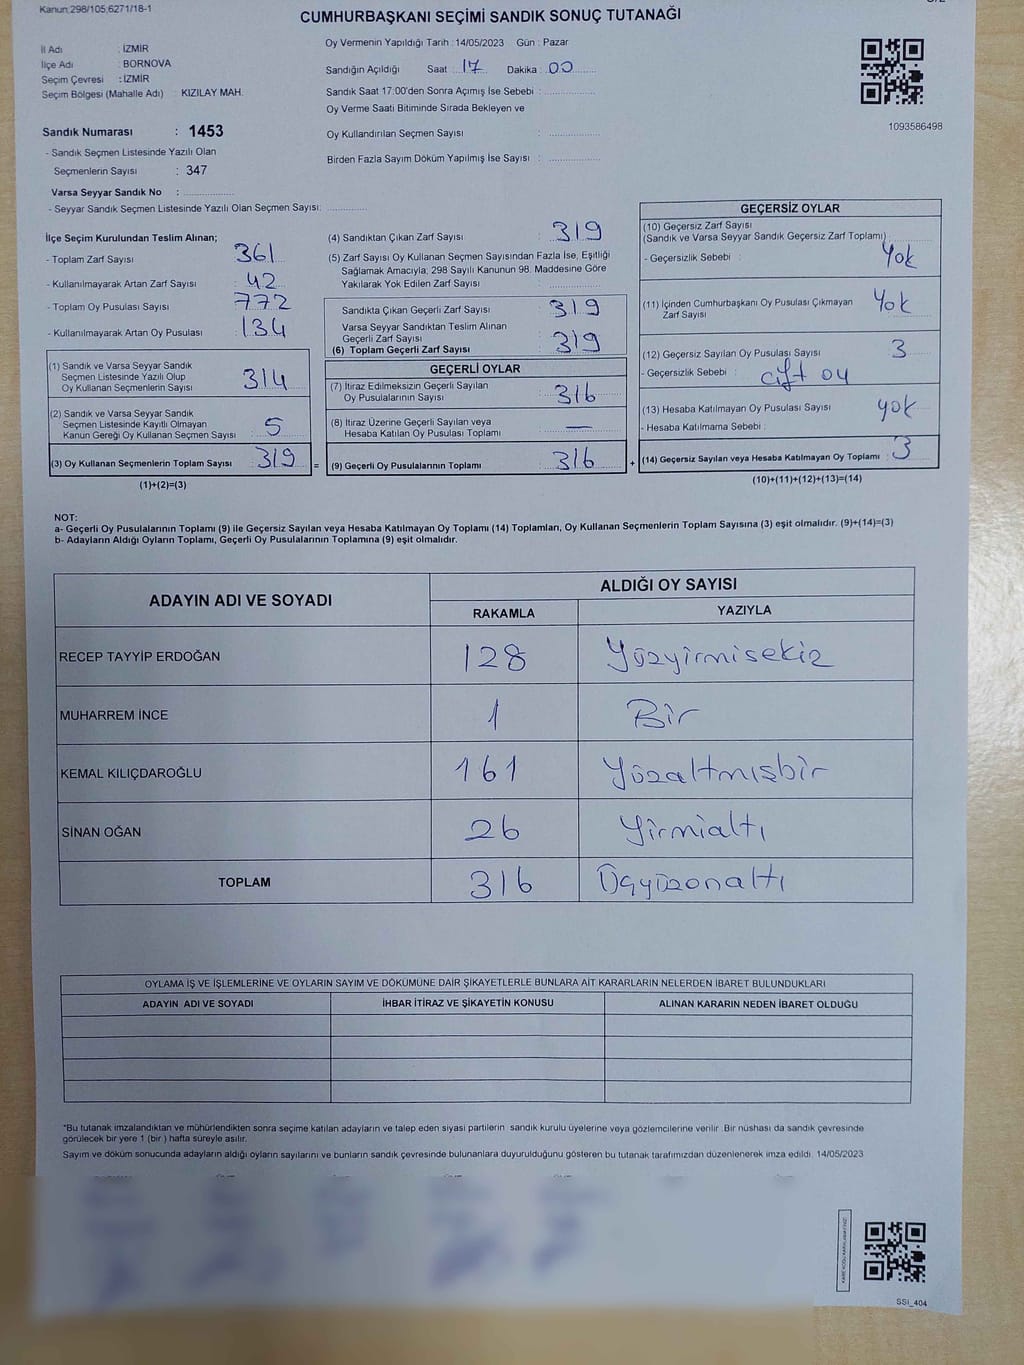 Kanun:298/105;6271/18-1
CUMHURBAŞKANI SEÇİMİ SANDIK SONUÇ TUTANAĞI
İl Adı : İZMİR
İlçe Adı : BORNOVA
Seçim Çevresi : İZMİR
Seçim Bölgesi (Mahalle Adı) : KIZILAY MAH.
Sandık Numarası : 1453
- Sandık Seçmen Listesinde Yazılı Olan
Seçmenlerin Sayısı : 347
Varsa Seyyar Sandık No :
- Seyyar Sandık Seçmen Listesinde Yazılı Olan Seçmen Sayısı:
Oy Vermenin Yapıldığı Tarih : 14/05/2023 Gün : Pazar
Sandığın Açıldığı Saat : 17 Dakika : 00
Sandık Saat 17:00'den Sonra Açımış İse Sebebi :
Oy Verme Saati Bitiminde Sırada Bekleyen ve
Oy Kullandırılan Seçmen Sayısı :
Birden Fazla Sayım Döküm Yapılmış İse Sayısı :
1093586498
İlçe Seçim Kurulundan Teslim Alınan;
- Toplam Zarf Sayısı : 361
- Kullanılmayarak Artan Zarf Sayısı : 42
- Toplam Oy Pusulası Sayısı : 772
- Kullanılmayarak Artan Oy Pusulası : 134
(1) Sandık ve Varsa Seyyar Sandık
Seçmen Listesinde Yazılı Olup
Oy Kullanan Seçmenlerin Sayısı 314
(2) Sandık ve Varsa Seyyar Sandık
Seçmen Listesinde Kayıtlı Olmayan
Kanun Gereği Oy Kullanan Seçmen Sayısı 5
(3) Oy Kullanan Seçmenlerin Toplam Sayısı 319
(1)+(2)=(3)
(4) Sandıktan Çıkan Zarf Sayısı 319
(5) Zarf Sayısı Oy Kullanan Seçmen Sayısından Fazla İse, Eşitliği
Sağlamak Amacıyla; 298 Sayılı Kanunun 98. Maddesine Göre
Yakılarak Yok Edilen Zarf Sayısı :
Sandıkta Çıkan Geçerli Zarf Sayısı 319
Varsa Seyyar Sandıktan Teslim Alınan
Geçerli Zarf Sayısı
(6) Toplam Geçerli Zarf Sayısı 319
GEÇERLİ OYLAR
(7) İtiraz Edilmeksizin Geçerli Sayılan
Oy Pusulalarının Sayısı 316
(8) İtiraz Üzerine Geçerli Sayılan veya
Hesaba Katılan Oy Pusulası Toplamı —
= (9) Geçerli Oy Pusulalarının Toplamı 316
GEÇERSİZ OYLAR
(10) Geçersiz Zarf Sayısı
(Sandık ve Varsa Seyyar Sandık Geçersiz Zarf Toplamı)
- Geçersizlik Sebebi : Yok
(11) İçinden Cumhurbaşkanı Oy Pusulası Çıkmayan
Zarf Sayısı Yok
(12) Geçersiz Sayılan Oy Pusulası Sayısı 3
- Geçersizlik Sebebi : çift oy
(13) Hesaba Katılmayan Oy Pusulası Sayısı yok
- Hesaba Katılmama Sebebi :
+ (14) Geçersiz Sayılan veya Hesaba Katılmayan Oy Toplamı : 3
(10)+(11)+(12)+(13)=(14)
NOT:
a- Geçerli Oy Pusulalarının Toplamı (9) ile Geçersiz Sayılan veya Hesaba Katılmayan Oy Toplamı (14) Toplamları, Oy Kullanan Seçmenlerin Toplam Sayısına (3) eşit olmalıdır. (9)+(14)=(3)
b- Adayların Aldığı Oyların Toplamı, Geçerli Oy Pusulalarının Toplamına (9) eşit olmalıdır.
ADAYIN ADI VE SOYADI ALDIĞI OY SAYISI
RAKAMLA YAZIYLA
RECEP TAYYİP ERDOĞAN 128 Yüzyirmisekiz
MUHARREM İNCE 1 Bir
KEMAL KILIÇDAROĞLU 161 Yüzaltmışbir
SİNAN OĞAN 26 Yirmialtı
TOPLAM 316 Üçyüzonaltı
OYLAMA İŞ VE İŞLEMLERİNE VE OYLARIN SAYIM VE DÖKÜMÜNE DAİR ŞİKAYETLERLE BUNLARA AİT KARARLARIN NELERDEN İBARET BULUNDUKLARI
ADAYIN ADI VE SOYADI İHBAR İTİRAZ VE ŞİKAYETİN KONUSU ALINAN KARARIN NEDEN İBARET OLDUĞU
*Bu tutanak imzalandıktan ve mühürlendikten sonra seçime katılan adayların ve talep eden siyasi partilerin sandık kurulu üyelerine veya gözlemcilerine verilir. Bir nüshası da sandık çevresinde
görülecek bir yere 1 (bir) hafta süreyle asılır.
Sayım ve döküm sonucunda adayların aldığı oyların sayılarını ve bunların sandık çevresinde bulunanlara duyurulduğunu gösteren bu tutanak tarafımızdan düzenlenerek imza edildi. 14/05/2023
SSI_404